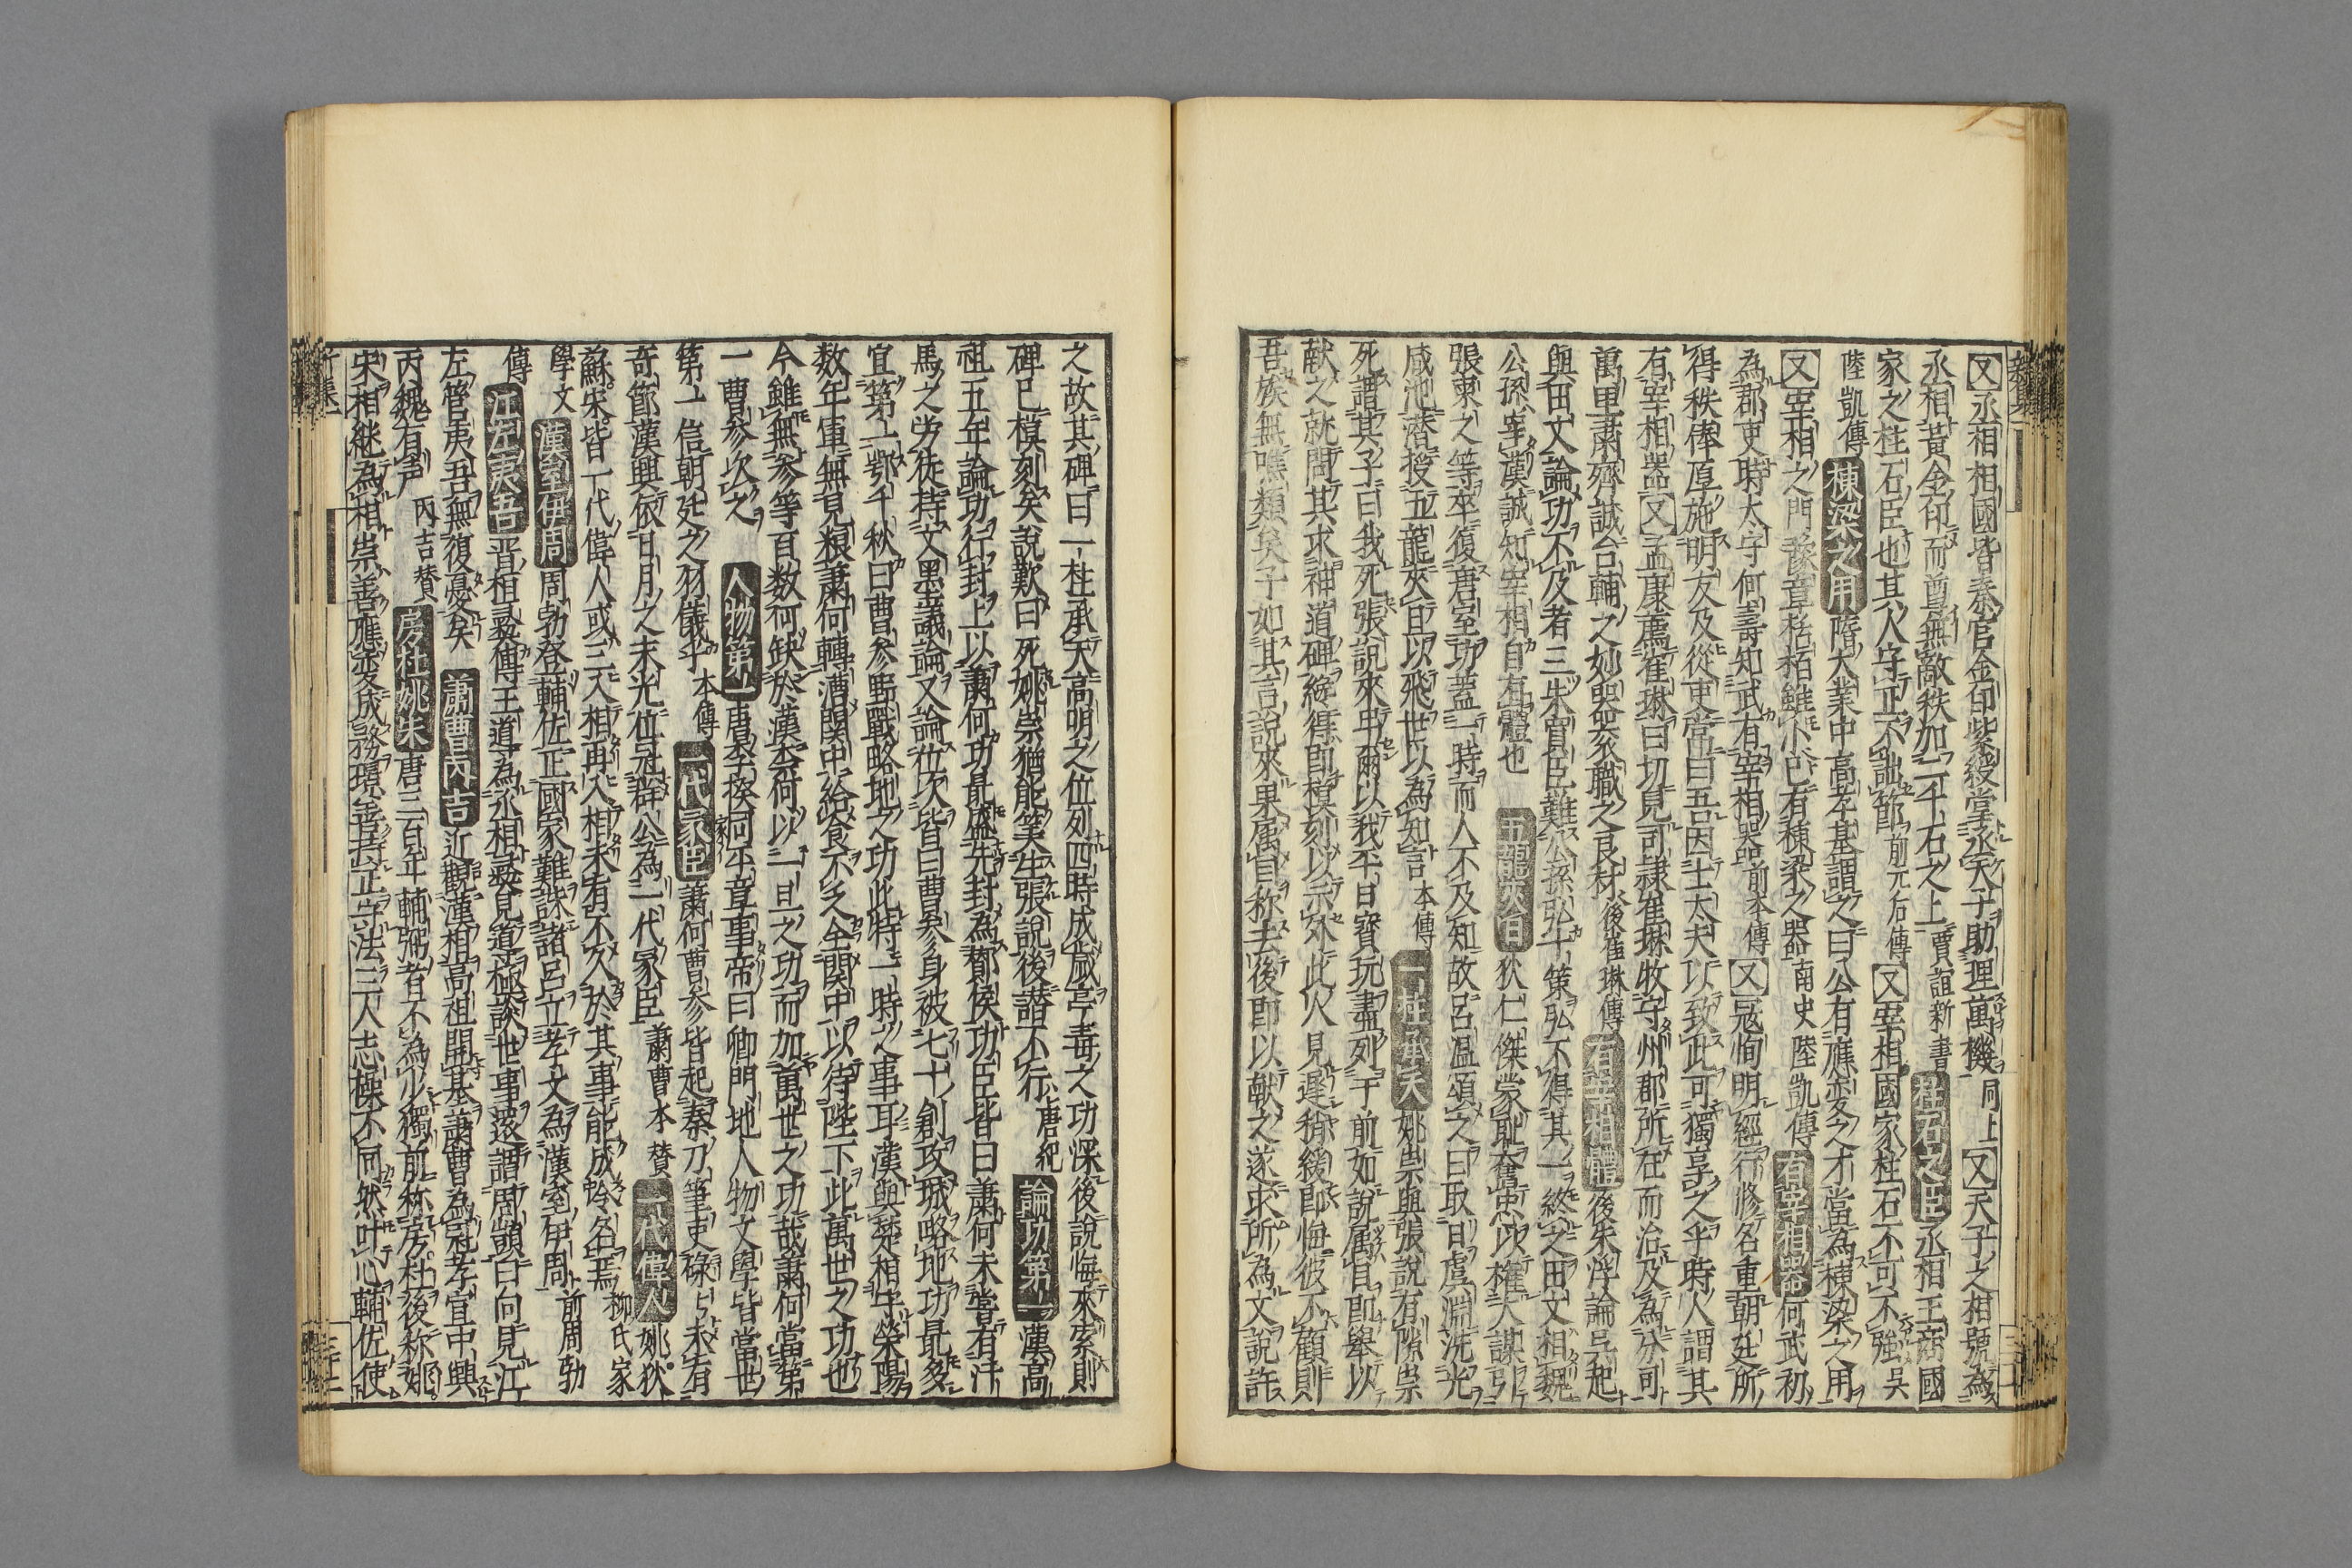 又丞相相國皆秦官金印紫綬掌丞天子助理萬機同上又天子之相號為
丞相黃金印而尊無敵秩加二千石之上賈誼新書柱石之臣丞相王商國
家之柱石臣也其人守正不詘節前元后傳又宰相國家柱石不可不強吳
陸凱傳棟梁之用隋大業中高孝基謂之曰公有應変之才當為棟梁之用
又宰相之門豫章栝栢雖小已有棟梁之器南史陸凱傳有宰相器何武初
為郡吏時太守何壽知武有宰相器前本傳又冦恂明經行修名重朝廷所
得秩俸厚施朋友及從吏常曰吾因士大夫以致此可獨享之乎時人謂其
有宰相器又孟康薦崔琳曰切見司隷崔琳牧守州郡所在而治及為外司
萬里肅齊誠台輔之妙器衮職之良材後崔琳傳有宰相體後朱浮論吳起
與田文論功不及者三朱買臣難公孫弘十策弘不得其一終之田文相魏
公孫宰漢誠知宰相自有體也五龍夾日狄仁傑蒙耻奮忠以權大謀引
張柬之等卒復唐室功蓋一時而人不及知故呂温頌之曰取日虞淵洗光
咸池潜授五龍夾日以飛世以為知言本傳一柱承天姚崇與張說有隙崇
死謂其子曰我死張說來弔爾以我平日寶玩畫列于前如說属目即舉以
献之就問其求神道碑縁得即模刻以示外此人見遲稍緩即悔彼不顧則
吾族無噍類矣子如其言說來果属目称去後即以献之遂求所為文說許
之故其碑曰一柱承天高明之位列四時成歲亭毒之功深後說悔來索則
碑已模刻矣說歎曰死姚崇猶能笑生張說後譖不行唐紀論功第一漢高
祖五年論功行封上以蕭何功最盛先封為酇侯功臣皆曰蕭何未嘗有汗
馬之労徒持文墨議論又論位次皆曰曹參身被七十創攻城略地功最多
宜第一鄂千秋曰曹參野戰略地之功此特一時之事耳漢與楚相守滎陽
数年軍無見粮蕭何轉漕関中給食不乏全関中以待陛下此萬世之功也
今雖無參等百数何缺於漢柰何以一旦之功而加萬世之功哉蕭何當第
一曹參次之人物第一唐李揆同平章事帝曰卿門地人物文學皆當世
第一信朝廷之羽儀乎本傳一代家臣蕭何曹參皆起秦刀筆吏碌々未有
奇節漢興依日月之末光位冠群公為一代冢臣蕭曹本賛一代偉人姚狄
蘇宋皆一代偉人或三入相再入相未有不久於其事能成於名焉柳氏家
學文漢室伊周周勃登輔佐正國家難誅諸呂立孝文為漢室伊周前周勃
傳江左夷吾晋相彛傳王道為丞相彛見導極談世事還謂周顗曰向見江
左管夷吾無復憂矣蕭曹丙吉近觀漢相高祖開基蕭曹為冠孝宣中興
丙魏有声丙吉賛房杜姚朱唐三百年輔弼者不為少獨前称房杜後称姚
宋相継為相崇善應变成務璟善持正守法三人志操不同然叶心輔佐使